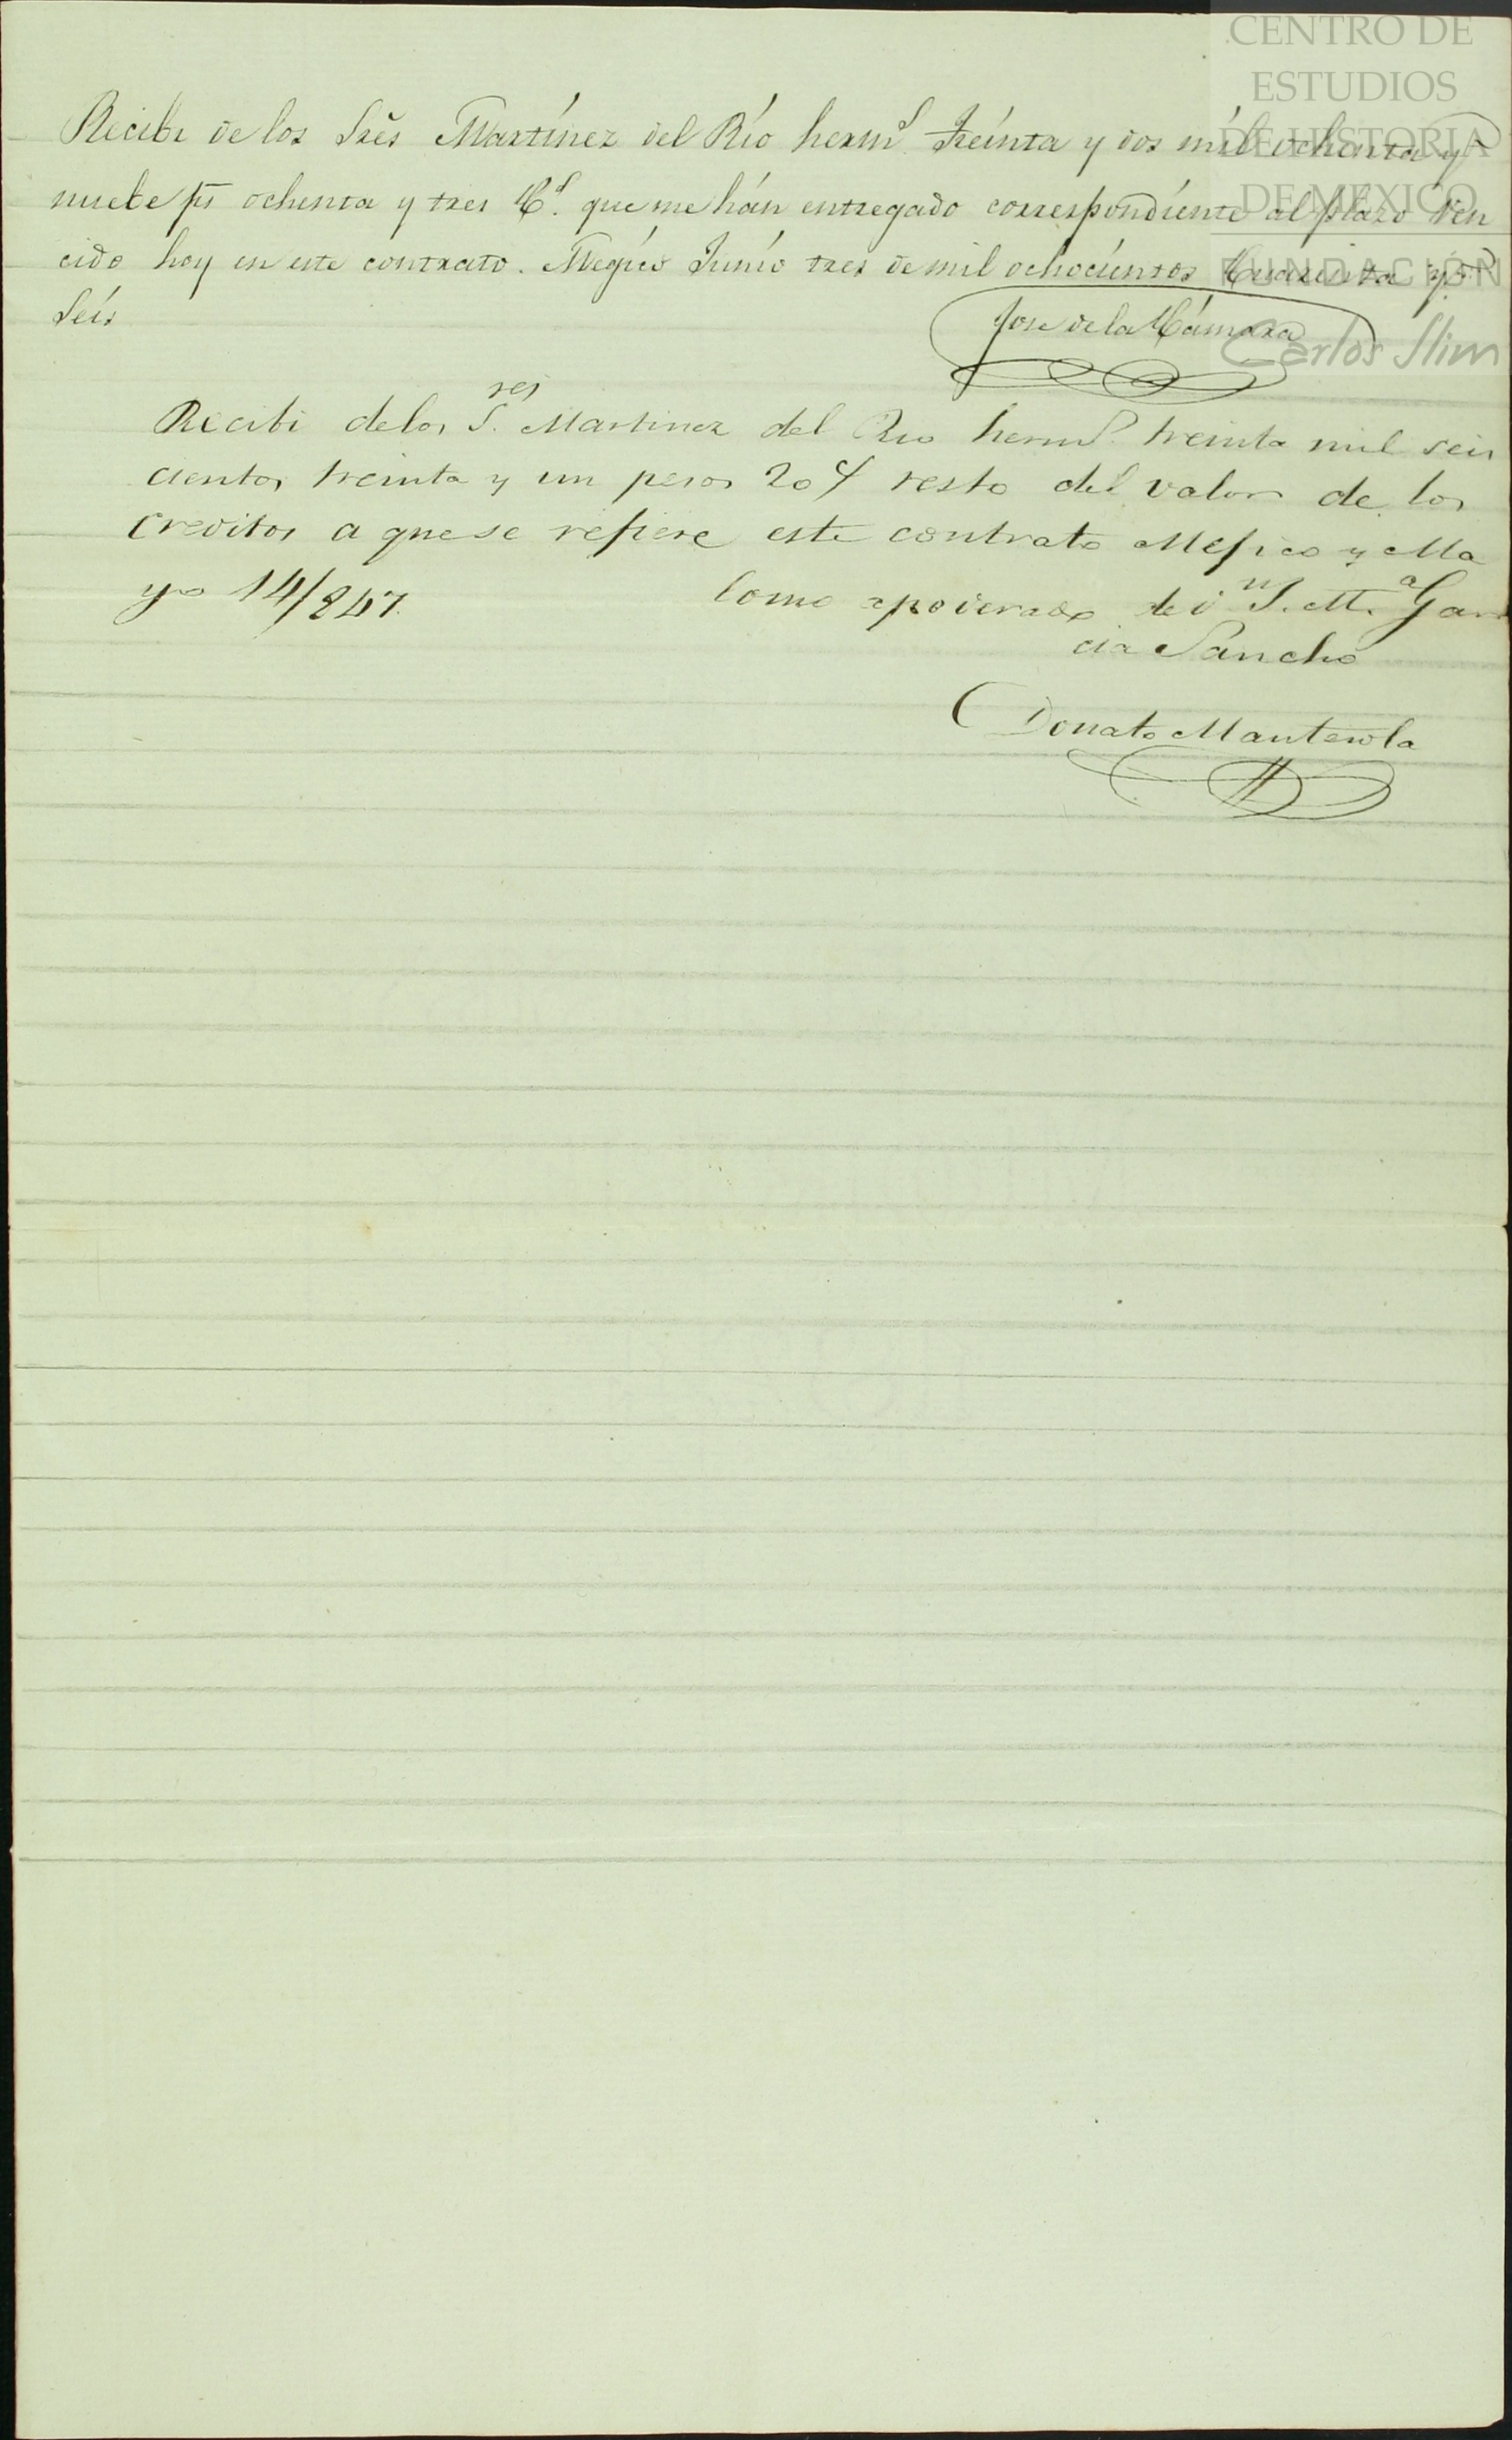 CENTRO DE
ESTUDIOS
DE HISTORIA
DE MEXICO
FUNDACIÓN
Carlos Slim
Recibi de los Sres Martínez del Río herms. treínta y dos míl ochenta y
nuebe ps ochenta y tres Cs. que me hán entregado correspondíente al plazo ven
cido hoy en este contrato. Megico Junío tres de mil ochocíentos Cuarenta y
Seís
Jose de la Cámara
Recibi delos S.res Martinez del Rio herms. treinta mil seis
cientos treinta y un pesos 20 resto del valor de los
creditos a que se refiere este contrato Mejico y Ma
yo 14/847.
Como apoderado de J. M.a Gar
cia Sancho
Donato Manterola